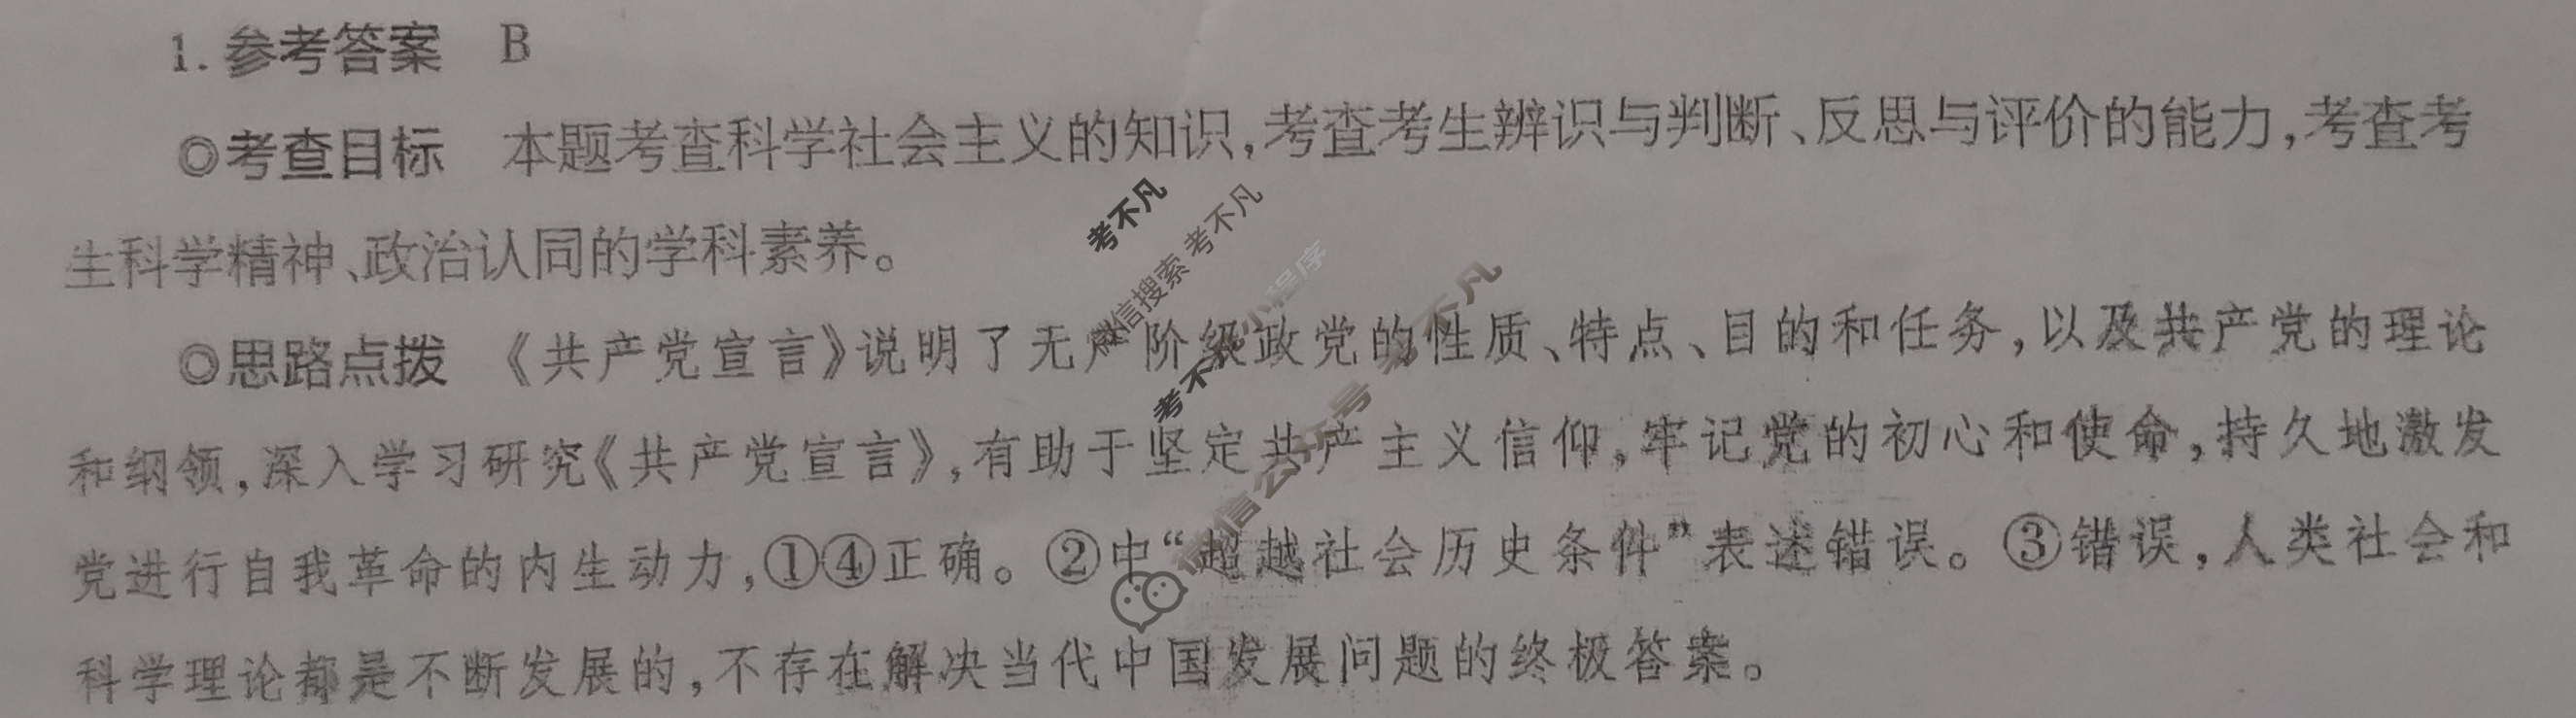 1. 参考答案 B
◎考查目标 本题考查科学社会主义的知识,考查考生辨识与判断、反思与评价的能力,考查考
生科学精神、政治认同的学科素养。
◎思路点拨 《共产党宣言》说明了无产阶级政党的性质、特点、目的和任务,以及共产党的理论
和纲领,深入学习研究《共产党宣言》,有助于坚定共产主义信仰,牢记党的初心和使命,持久地激发
党进行自我革命的内生动力,①④正确。②中“超越社会历史条件”表述错误。③错误,人类社会和
科学理论都是不断发展的,不存在解决当代中国发展问题的终极答案。
考不凡
微信搜索 考不凡
考不凡 小程序
微信公众号 考不凡